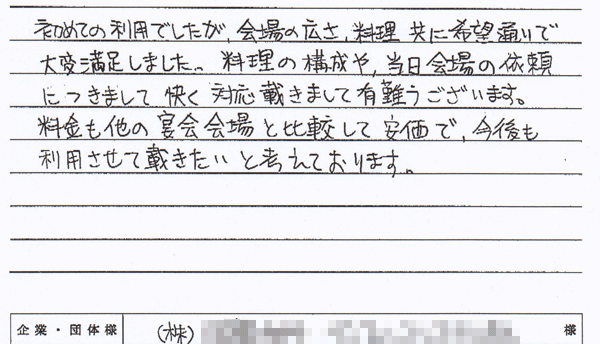 初めての利用でしたが、会場の広さ、料理 共に希望通りで
大変満足しました。料理の構成や、当日会場の依頼
につきまして 快く 対応戴きまして有難うございます。
料金も他の宴会会場と比較して安価で、今後も
利用させて戴きたいと考えております。
企業・団体様 (株) 様